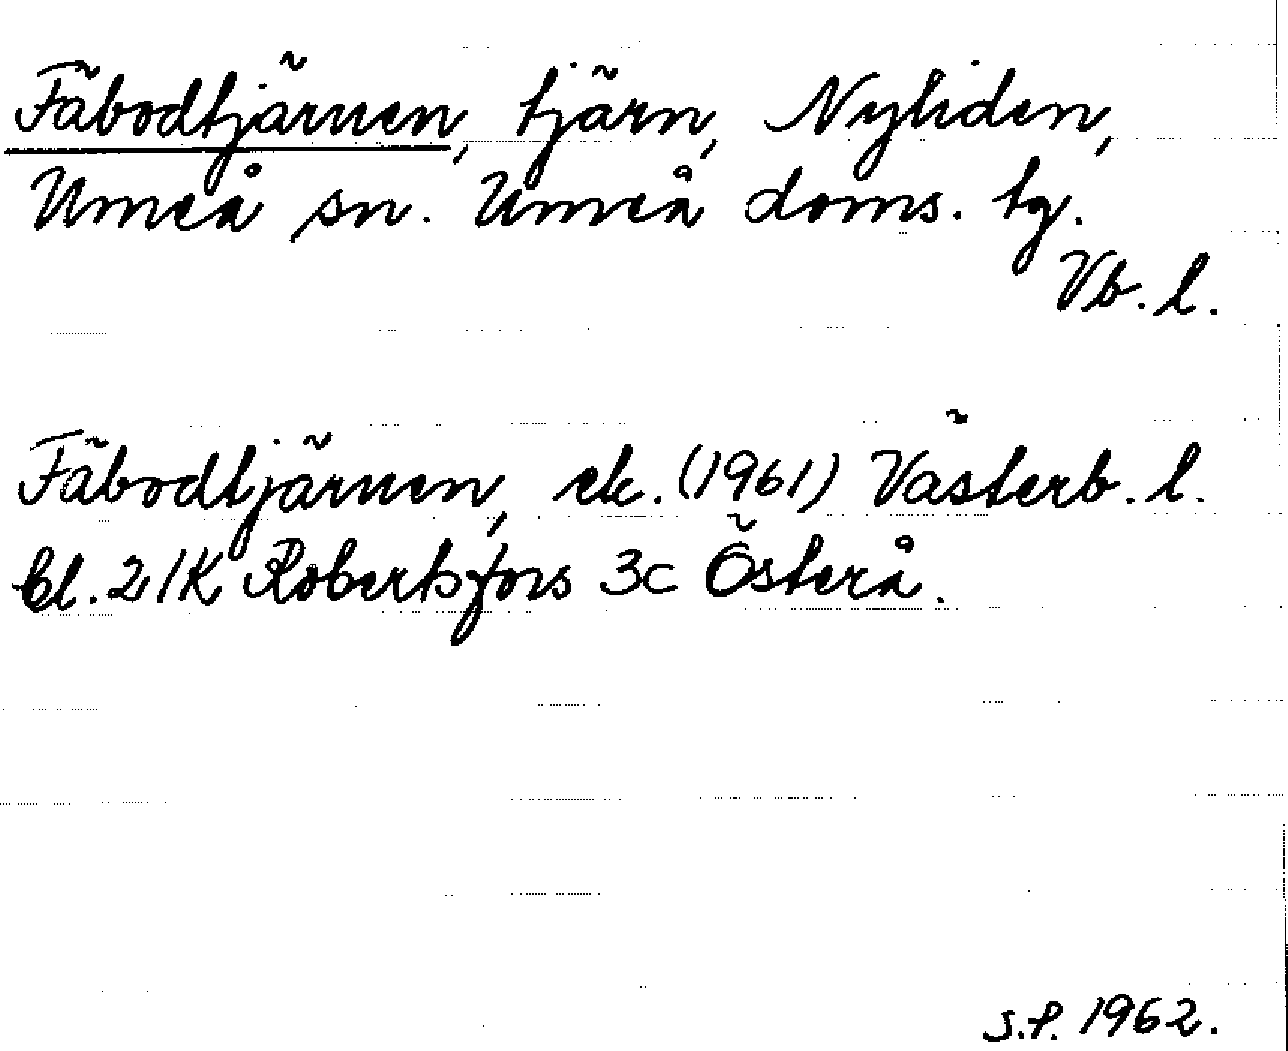 Fäbodtjärnen, tjärn, Nyliden,
Umeå sn. Umeå doms. tg.
Vb. l.
Fäbodtjärnen, ek. (1961) Västerb. l.
Bl. 21K Robertsfors 3c Österå.
S.P. 1962.